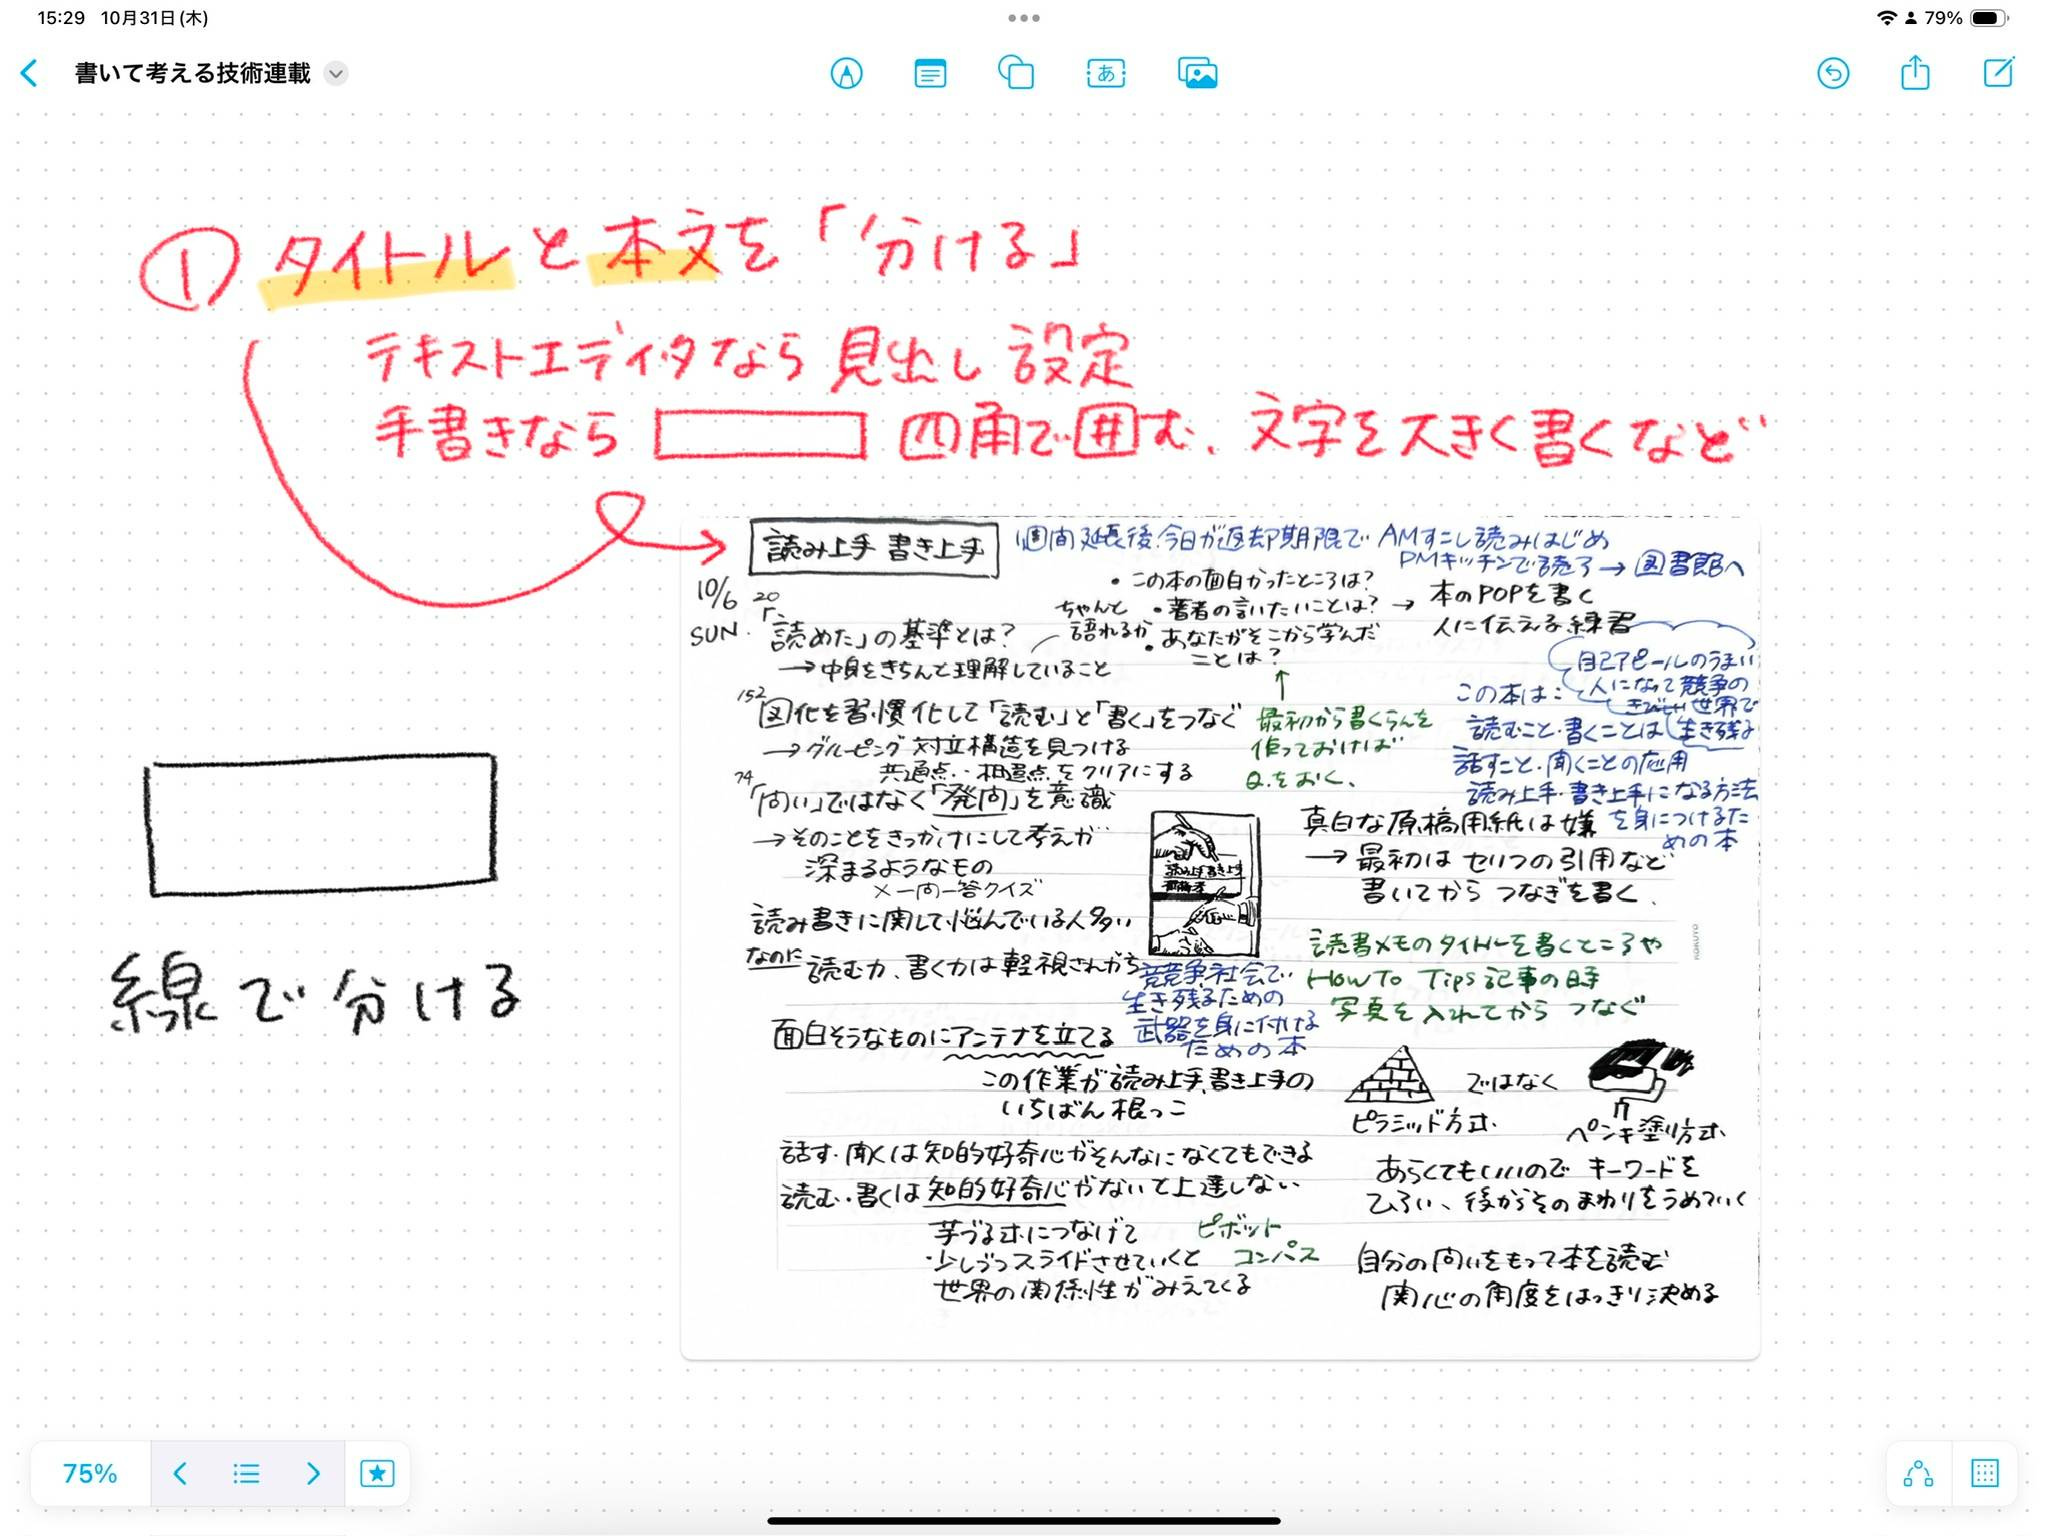 15:29 10月31日(木)
79%
書いて考える技術連載
あ
① タイトルと本文を「分ける」
テキストエディタなら見出し設定
手書きなら 四角で囲む、文字を大きく書くなど
読み上手 書き上手
1週間延長後、今日が返却期限で AMすこし読みはじめ
PMキッチンで読了→図書館へ
10/6
SUN.
20
「読めた」の基準とは?
→中身をきちんと理解していること
ちゃんと
語れるか
・この本の面白かったところは?
・著者の言いたいことは?→
・あなたがそこから学んだ
ことは?
本のPOPを書く
人に伝える練習
152
図化を習慣化して「読む」と「書く」をつなぐ
→グルーピング 対立構造を見つける
共通点・相違点をクリアにする
最初から書くらんを
作っておけば
Q.をおく、
自己アピールのうまい
人になって競争の
きびしい世界で
生き残る
この本は:
読むこと・書くことは
話すこと・聞くことの応用
読み上手・書き上手になる方法
を身につけるた
めの本
74
「問い」ではなく「発問」を意識
→そのことをきっかけにして考えが
深まるようなもの
×一問一答クイズ
読み書きに関して悩んでいる人多い
なのに 読む力、書く力は軽視されがち
読み上手書き上手
齋藤孝
競争社会で
生き残るための
武器を身に付ける
ための本
真白な原稿用紙は嫌
→最初はセリフの引用など
書いてからつなぎを書く、
読書メモのタイトルを書くところや
HowTo Tips記事の時
写真を入れてからつなぐ
KOKUYO
面白そうなものにアンテナを立てる
この作業が読み上手、書き上手の
いちばん根っこ
ピラミッド方式.
ではなく
ペンキ塗り方式.
話す・聞くは知的好奇心がそんなになくてもできる
読む・書くは知的好奇心がないと上達しない
あらくてもいいのでキーワードを
ひろい、後からそのまわりをうめていく
芋づる式につなげて
・少しづつスライドさせていくと
世界の関係性がみえてくる
ピボット
コンパス
自分の問いをもって本を読む
関心の角度をはっきり決める
線で分ける
75%